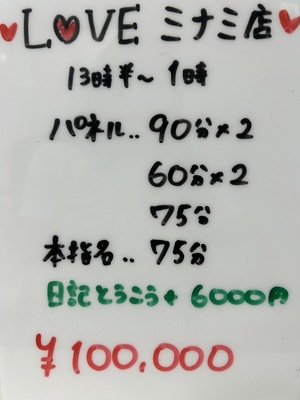 LOVE ミナミ店
13時半～1時
パネル.. 90分×2
60分×2
75分
本指名.. 75分
日記とうこう+6000円
¥100.000